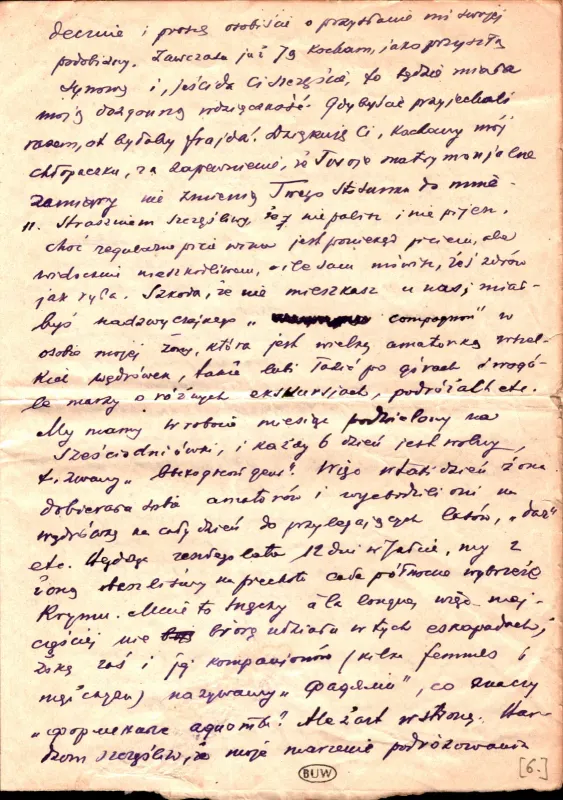 decznie i proszę osobiście o przysłanie mi swojej
podobizny. Zawczasu już Ją kocham, jako przyszłą
synową i, jeśli da Ci szczęście, to będzie miała
moją dozgonną wdzięczność. Gdybyście przyjechali
razem, ot byłaby frajda! Dziękuję Ci, kochany mój
chłopaczku, za zapewnienie, że Twoje matrymonjalne
zamiary nie zmienią Twego stosunku do mnie.
11. Straszniem szczęśliwy, że nie palisz i nie pijesz,
choć regularne picie wina jest poniekąd piciem, ale
widocznie nieszkodliwem, o ile sam mówisz, żeś zdrów
jak ryba. Szkoda, że nie mieszkasz u nas; miał-
byś nadzwyczajnego „ compagnon" w
osobie mojej żony, która jest wielką amatorką wszel-
kich wędrówek, także lubi łazić po górach i wogó-
le marzy o różnych ekskursjach, podróżach etc.
My mamy w robocie miesiąc podzielony na
sześciodniówki, i każdy 6 dzień jest wolny,
t. zwany „выходной день". Więc w taki dzień żona
dobiera sobie amatorów i wychodzili oni na
wędrówkę na cały dzień do przylegających lasów,
etc. Będąc zeszłego lata 12 dni w Jałcie, my z
żoną obeszliśmy na piechotę całe północne wybrzeże
Krymu. Mnie to męczy à la longue, więc naj-
częściej nie biorę udziału w tych eskapadach;
żonę zaś i jej kompanionów (kilka femmes i
mężczyzn) nazywamy „ , co znaczy
„ ". Ale żart w stronę.
dzom szczęśliw, że moje marzenie podróżowania
BUW
[6.]